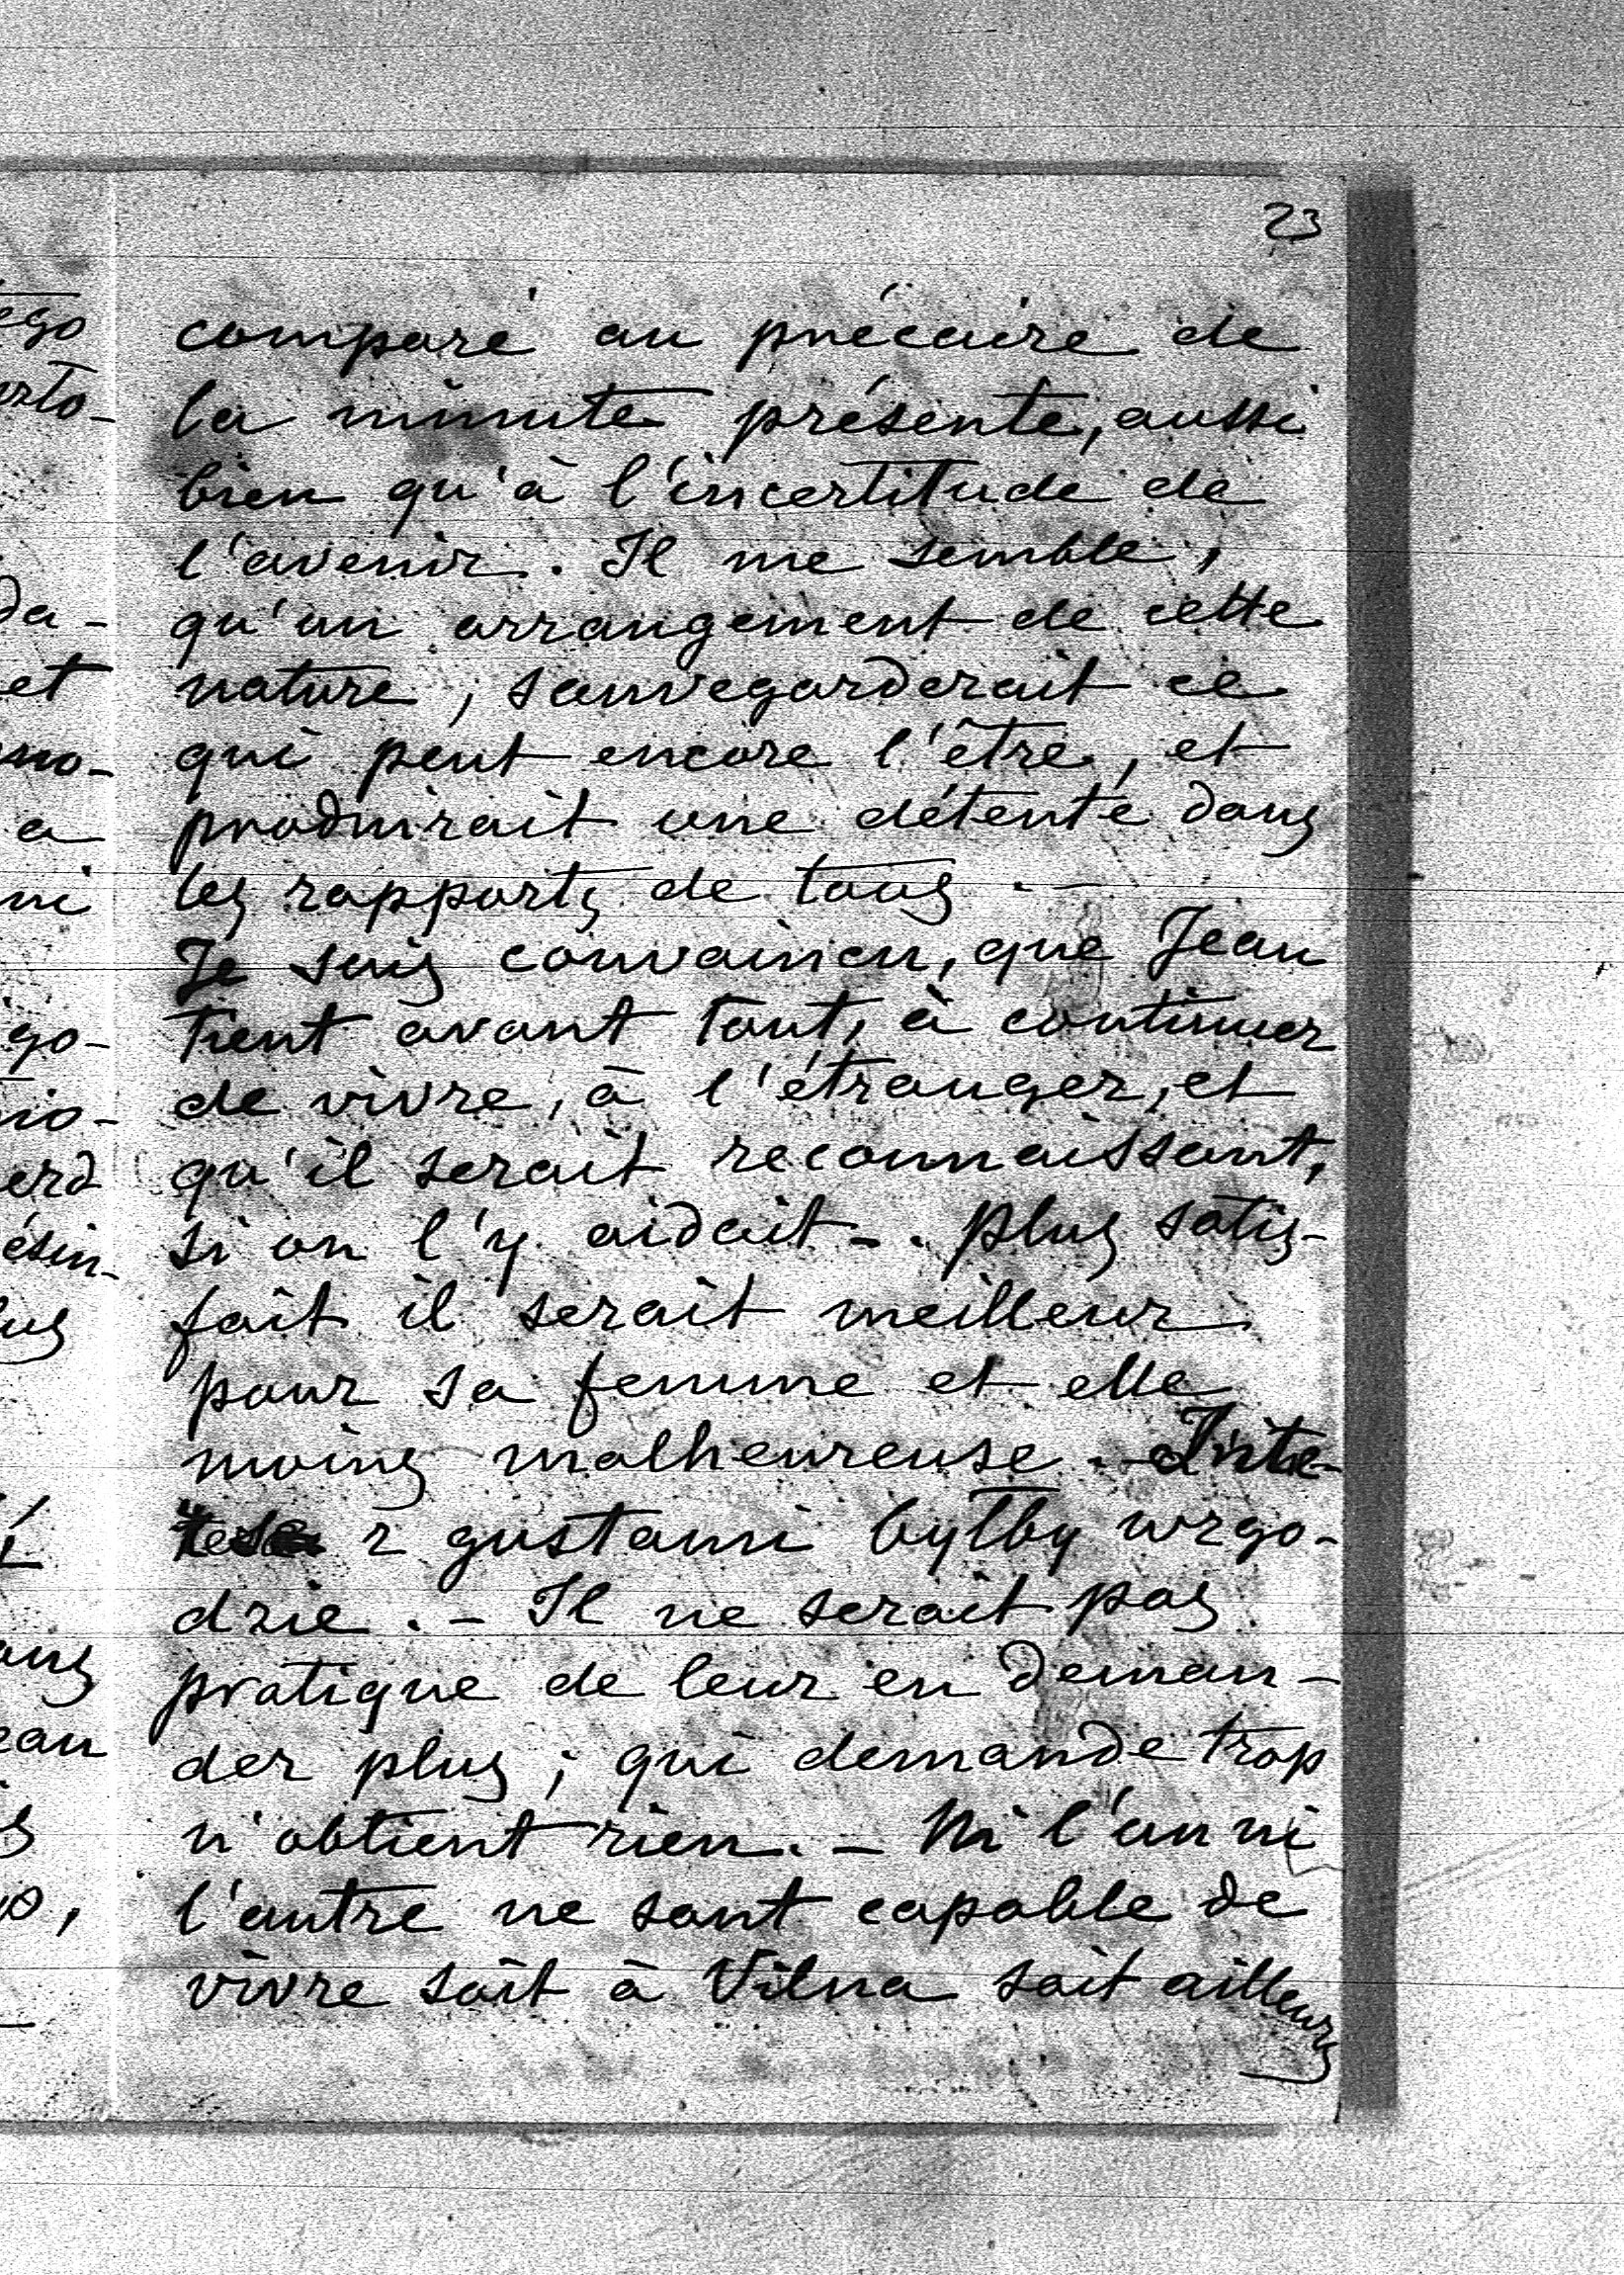 23
comparé au précaire de
la minute présente, aussi
bien qu'à l'incertitude de
l'avenir. Il me semble,
qu'un arrangement de cette
nature, sauvegarderait ce
qui peut encore l'être, et
produirait une détente dans
les rapports de tous.—
Je suis convaincu, que Jean
tient avant tout, à continuer
de vivre, à l'étranger, et
qu'il serait reconnaissant,
si on l'y aidait-. plus satis-
fait il serait meilleur
pour sa femme et elle
moins malheureuse. - Inte-
z gustami byłby w zgo-
dzie. - Il ne serait pas
pratique de leur en deman-
der plus; qui demande trop
n'obtient rien. - Ni l'un ni
l'autre ne sont capable de
vivre soit à Vilna soit ailleurs